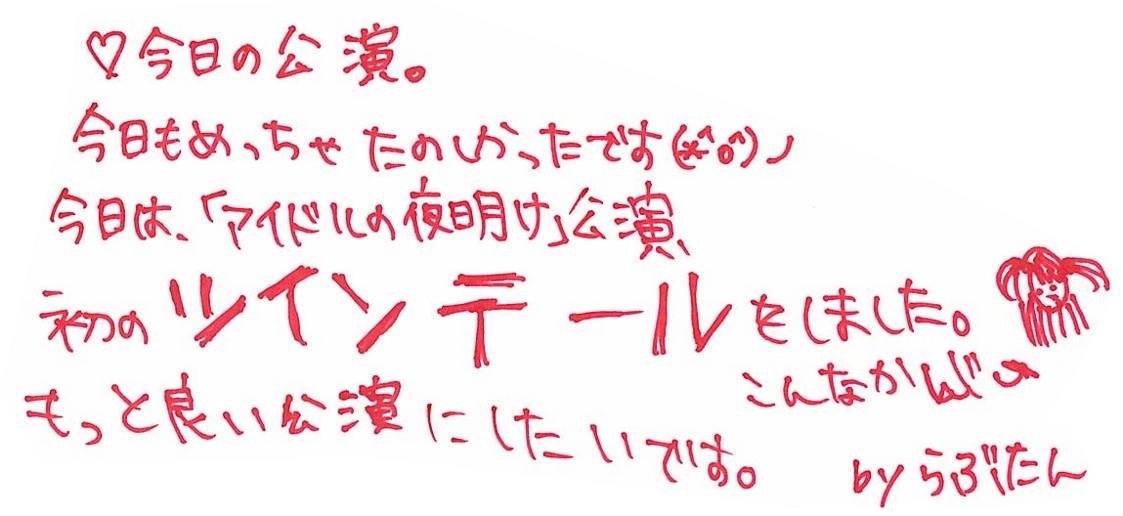 ♡今日の公演。
今日もめっちゃたのしかったです(*^o^)ノ
今日は、「アイドルの夜明け」公演、
初のツインテールをしました。
こんなかんじ
もっと良い公演にしたいです。
by らぶたん